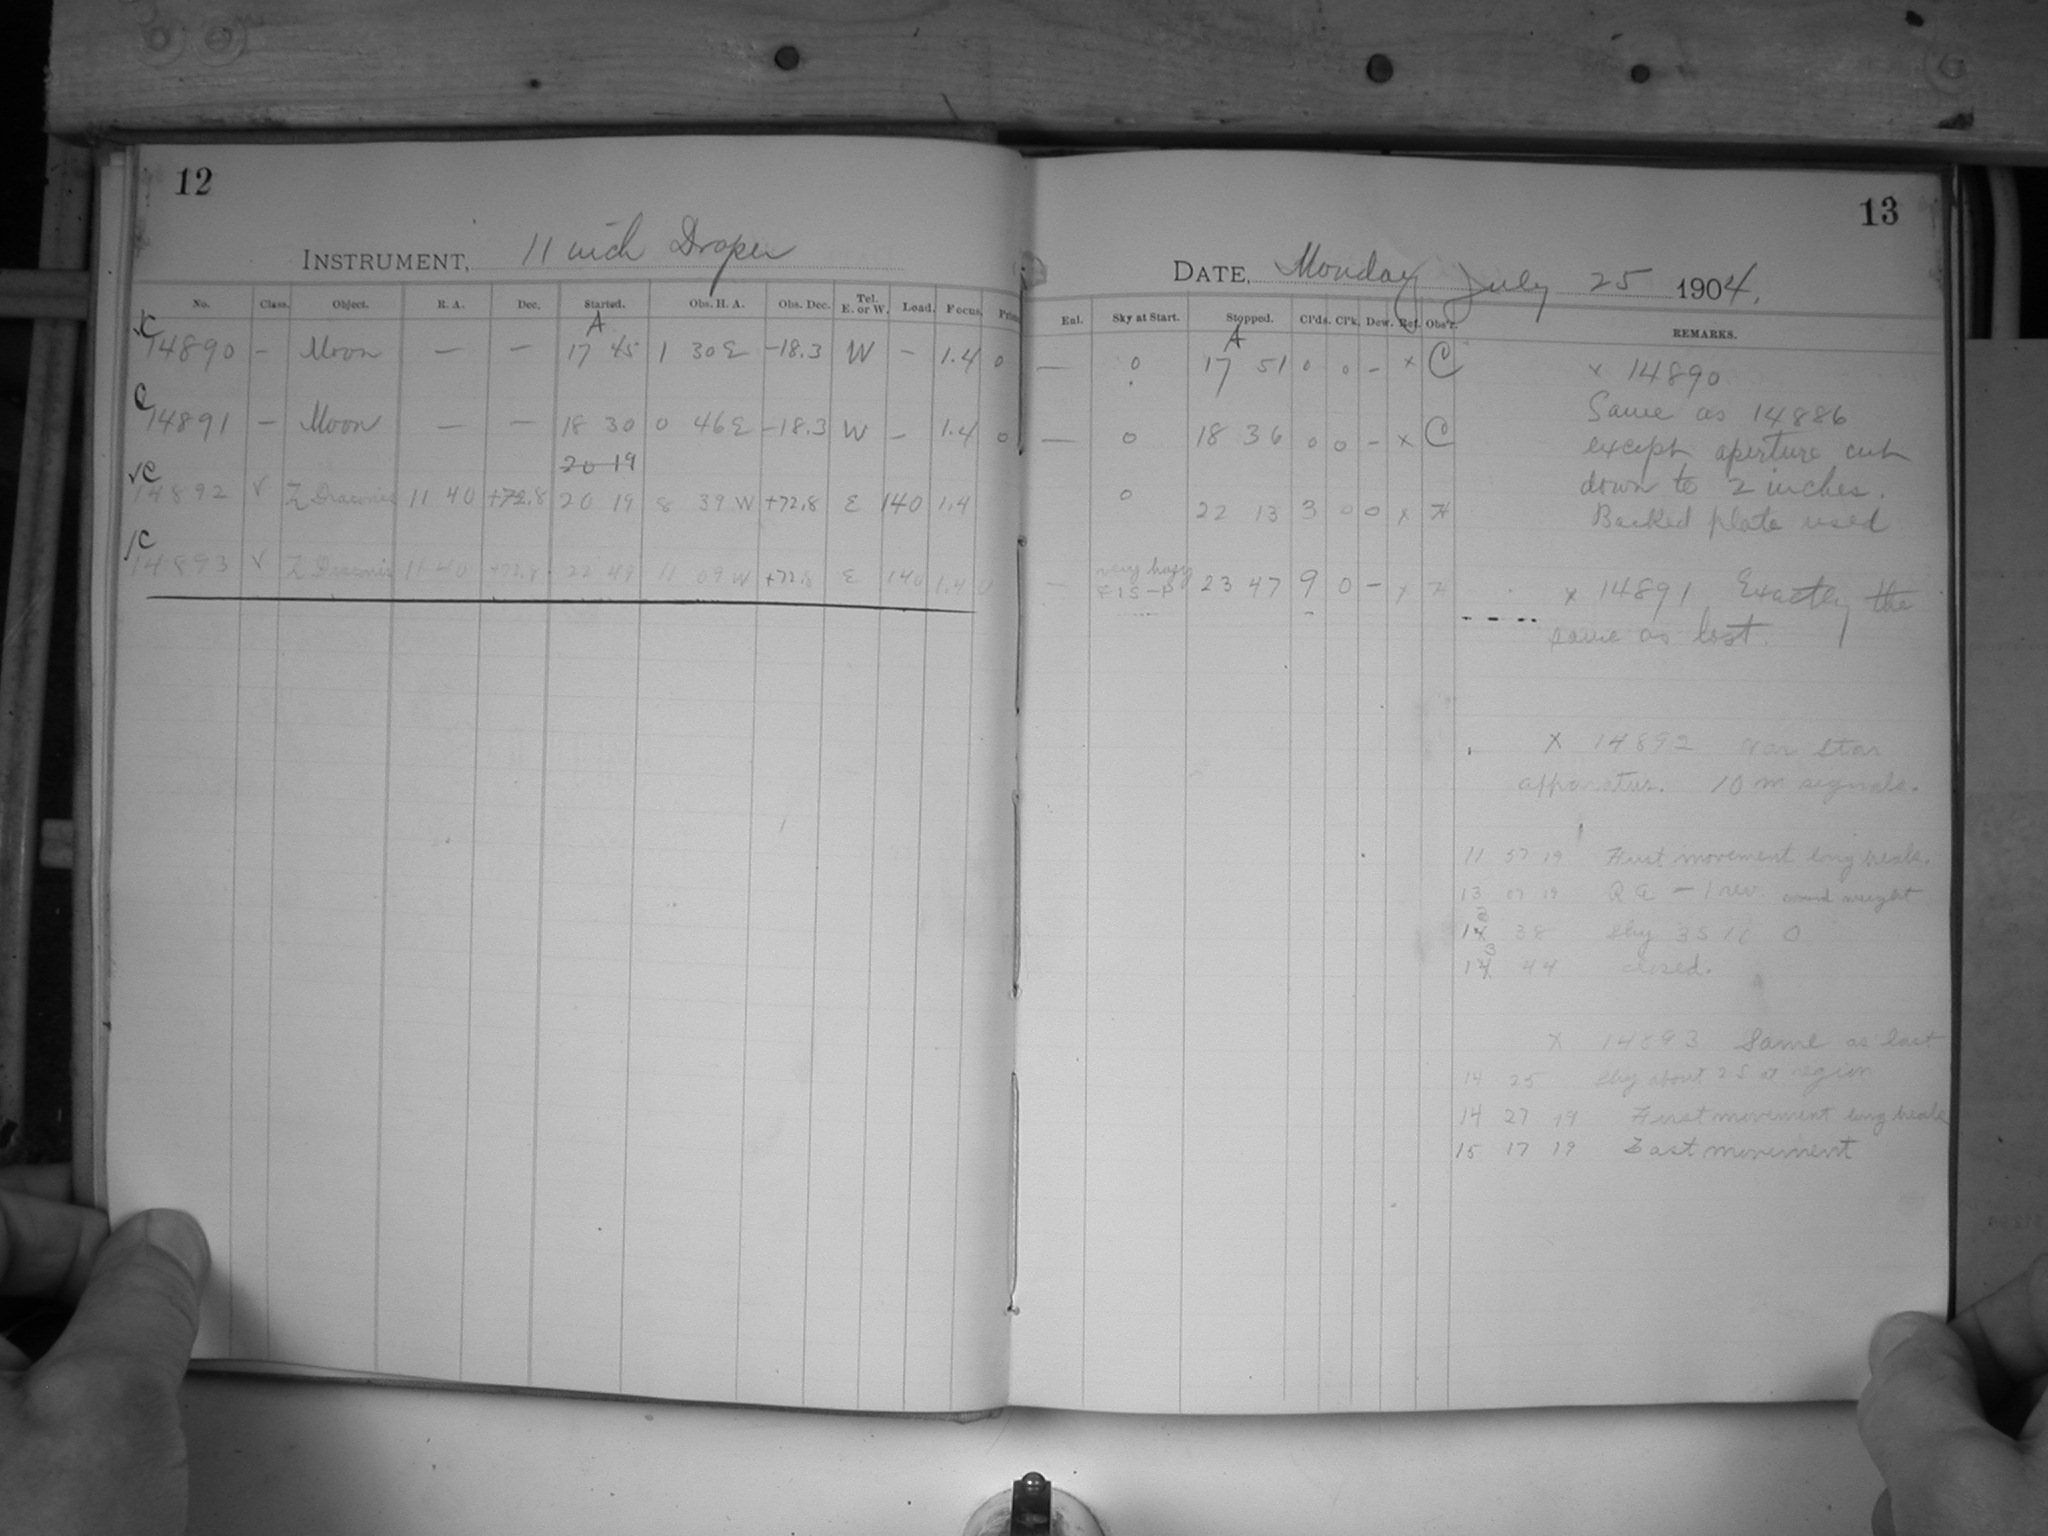 12
INSTRUMENT, 11 inch Draper
No. Class. Object. R. A. Dec. Started. Obs. H. A. Obs. Dec. Tel. E. or W. Load. Focus.
A
C 14890 — Moon — — 17 45 1 30 E -18.3 W — 1.4 0
C 14891 — Moon — — 18 30 0 46 E -18.3 W — 1.4 0
20 19
√C 14892 √ Z Draconis 11 40 +72.8 20 19 8 39 W +72.8 E 140 1.4
√C 14893 √ Z Draconis 11 40 +72.8 22 49 11 09 W +72.8 E 140 1.4 0
13
DATE, Monday July 25 1904.
Enl. Sky at Start. Stopped. Cl'ds. Cl'k. Dew. Ref. Obs'r. REMARKS.
A
— 0 17 51 0 0 – x C
— 0 18 36 0 0 – x C
0 22 13 3 0 0 x H
— very hazy 23 47 9 0 – x H
x 14890
Same as 14886
except aperture cut
down to 2 inches.
Backed plate used
x 14891 Exactly the
same as last.
x 14892 Var star
apparatus. 10 m signals.
11 57 19 First movement long break.
13 07 19 R A – 1 rev. wound weight
38 Sky 0
44 closed.
x 14893 Same as last
14 25 Sky about 25 at region
14 27 19 First movement long break
15 17 19 Last movement